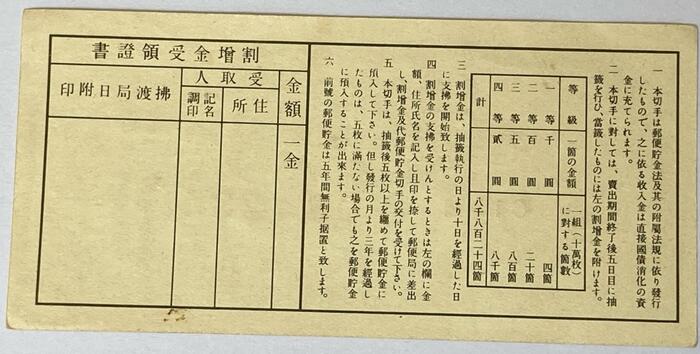 一 本切手は郵便貯金法及其の附屬法規に依り發行
したもので、之に依る收入金は直接國債消化の資
金に充てられます。
二 本切手に對しては、賣出期間終了後五日目に抽
籤を行ひ、當籤したものには左の割增金を附けます。
等級 一箇の金額 一組(十萬枚)に對する箇數
一等 千圓 四箇
二等 百圓 二十箇
三等 五圓 八百箇
四等 貳圓 八千箇
計 八千八百二十四箇
三 割增金は、抽籤執行の日より十日を經過した日
に支拂を開始致します。
四 割增金の支拂を受けんとするときは左の欄に金
額、住所氏名を記入し且印を捺して郵便局に差出
し、割增金及代り郵便貯金切手の交付を受けて下さい。
五 本切手は、抽籤後五枚以上を纏めて郵便貯金に
預入して下さい。但し發行の月より三年を經過し
たものは、五枚に滿たない場合でも之を郵便貯金
に預入することが出來ます。
六 前號の郵便貯金は五年間無利子据置と致します。
割增金受領證書
金額
一金
受取人
住所
記名調印
拂渡局日附印